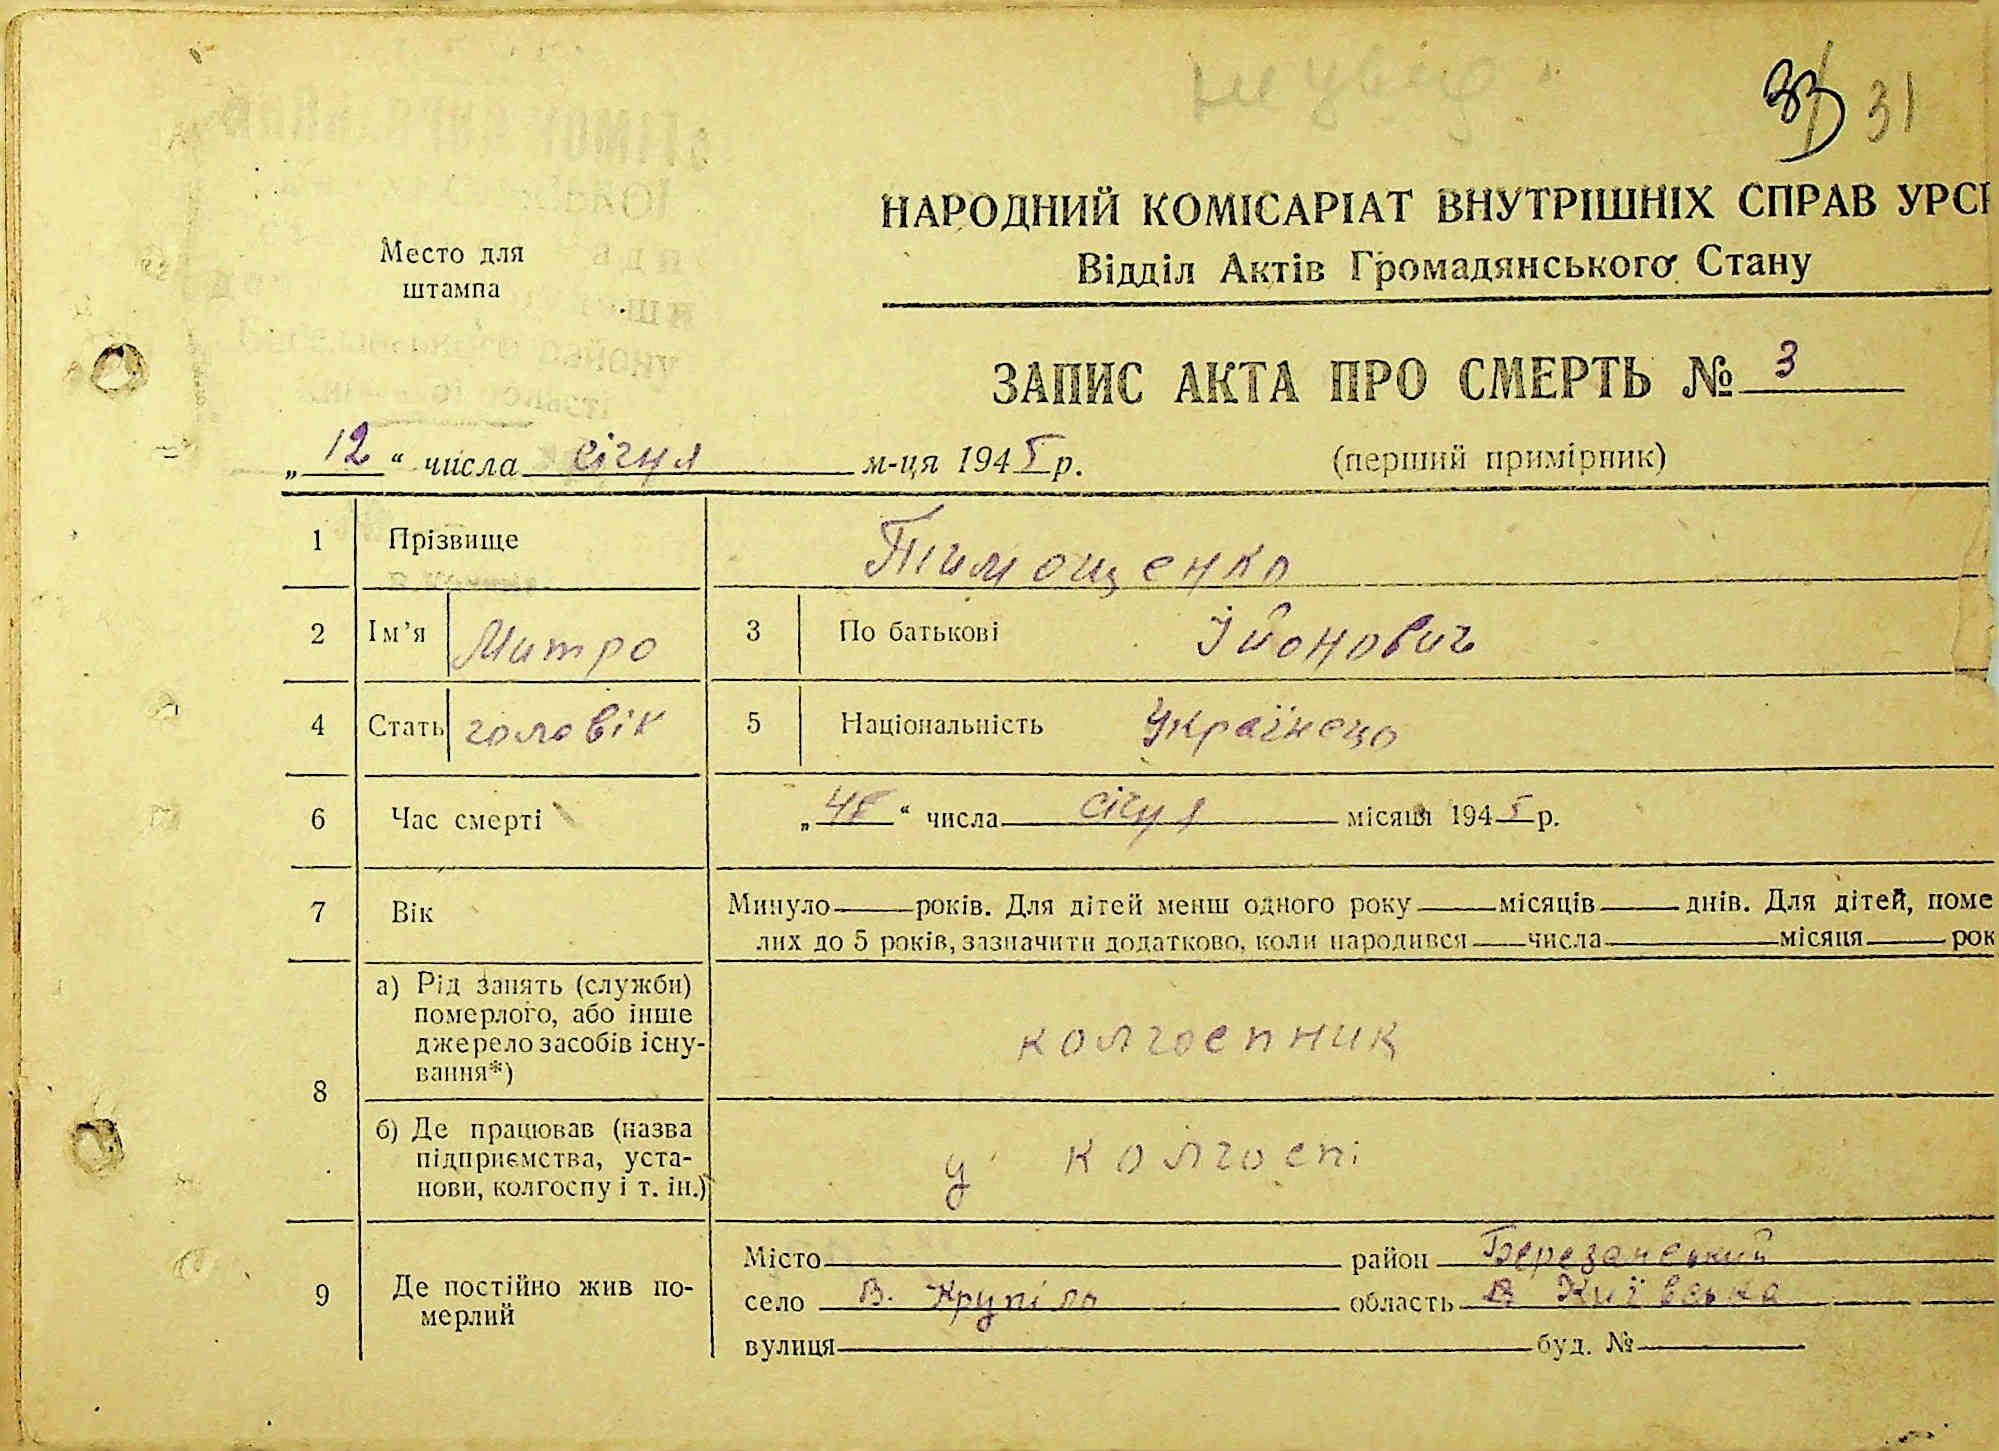 31
НАРОДНИЙ КОМІСАРІАТ ВНУТРІШНІХ СПРАВ УРСР
Відділ Актів Громадянського Стану
Место для
штампа
ЗАПИС АКТА ПРО СМЕРТЬ № 3
„12“ числа січня м-ця 1945 р.
(перший примірник)
1 Прізвище Тимощенко
2 Ім’я Митро 3 По батькові Ійонович
4 Стать чоловік 5 Національність Українець
6 Час смерті „ “ числа січня місяця 1945 р.
7 Вік Минуло років. Для дітей менш одного року місяців днів. Для дітей, поме
лих до 5 років, зазначити додатково, коли народився числа місяця рок
8 а) Рід занять (служби)
померлого, або інше
джерело засобів існу-
вання*) колгоспник
б) Де працював (назва
підприємства, уста-
нови, колгоспу і т. ін.) у колгоспі
9 Де постійно жив по-
мерлий
Місто район Березанський
село В. Крупіль область Київська
вулиця буд. №